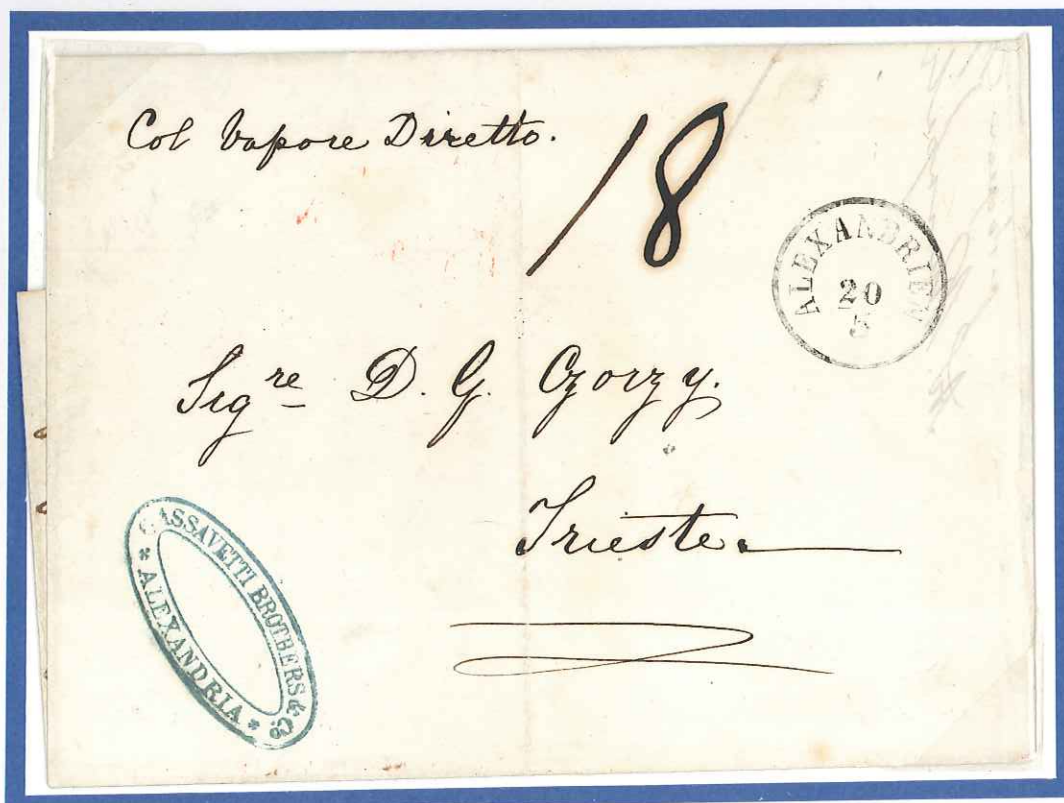 Col Vapore Diretto.
18
ALEXANDRIEN
20
5
Sigre D. G.
Trieste.
CASSAVETTI BROTHERS & Co
* ALEXANDRIA *